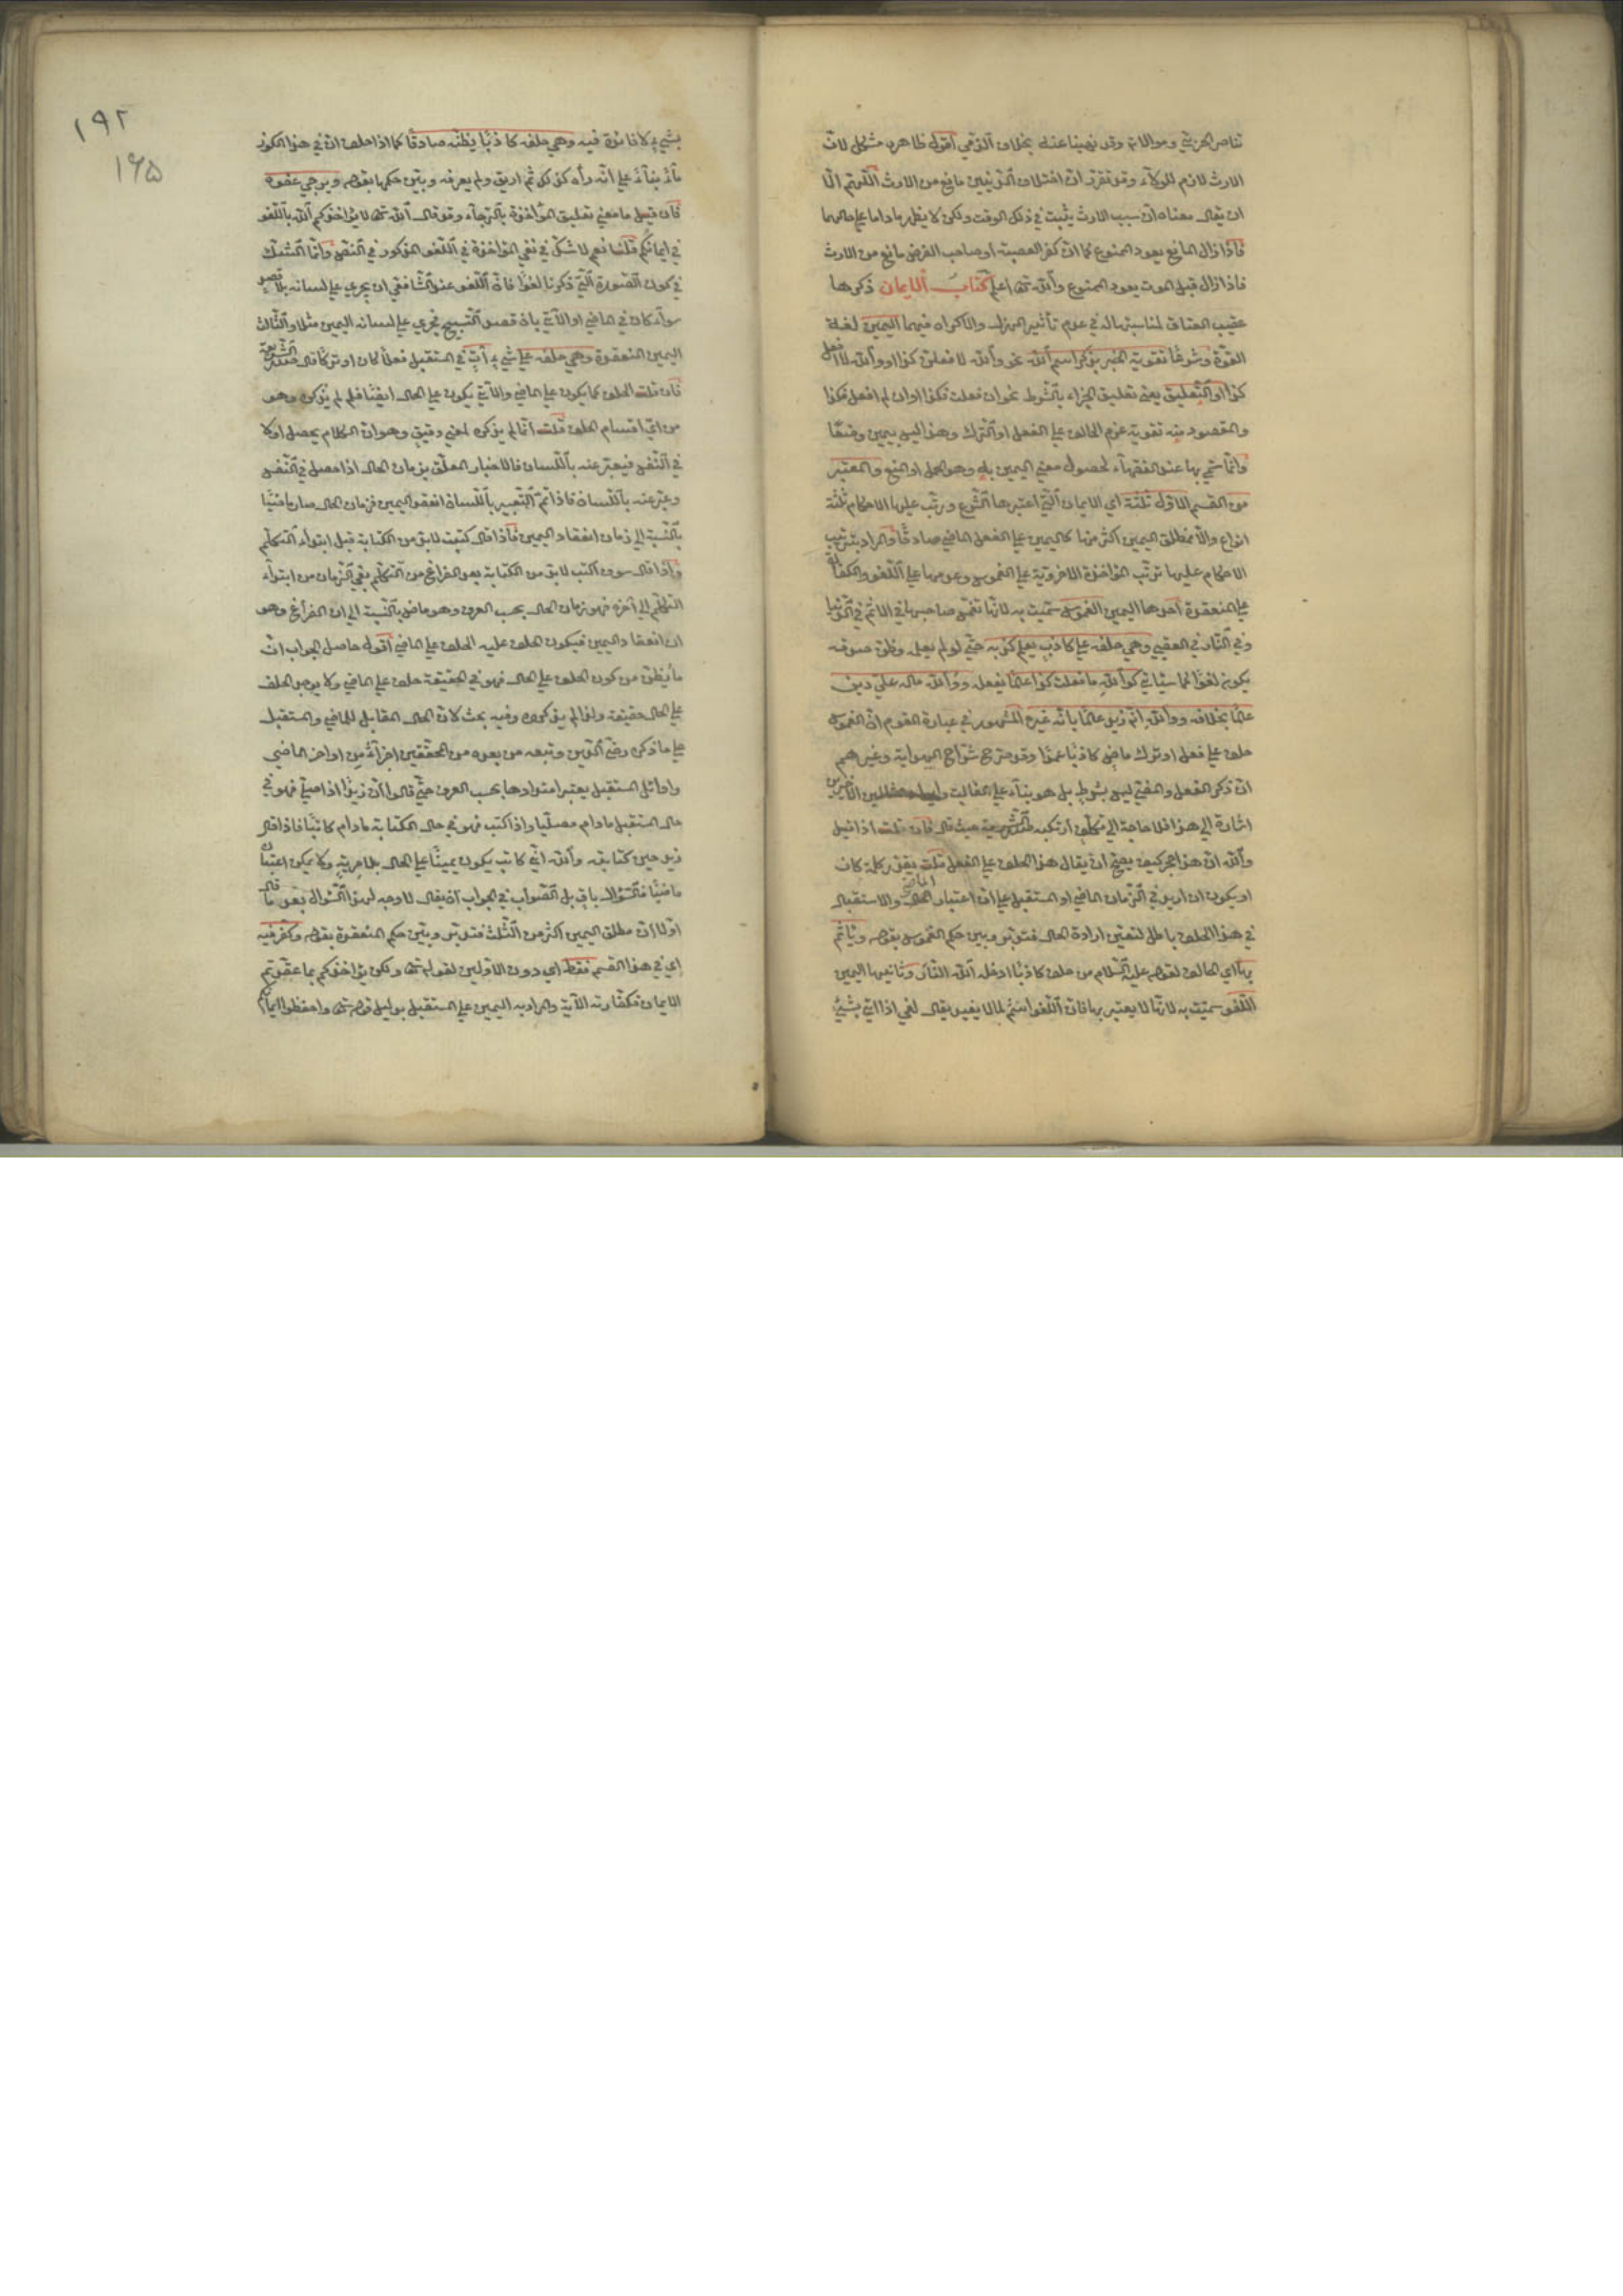 تناصر الحربي وموالاته وقد نهينا عنه بخلاف الذمي أقول ظاهره مشكل لان
الارث لازم للولاء وقد تقرر ان اختلاف الدينين مانع من الارث اللهم الا
ان يقال معناه ان سبب الارث يثبت في ذلك الوقت ولكن لا يظهر ما داما على حالهما
فاذا زال المانع يعود الممنوع كما ان كفر العصبة او صاحب الفرض مانع من الارث
فاذا زال قبل الموت يعود الممنوع والله تعالى اعلم كتاب الايمان ذكرها
عقيب العتاق لمناسبتها له في عدم تأثير الهزل والاكراه فيهما اليمين لغة
القوة وشرعا تقوية الخبر بذكر اسم الله نحو والله لا فعلن كذا او والله لا افعل
كذا او التعليق يعني تعليق الجزاء بالشرط نحو ان فعلت فكذا او ان لم افعل فكذا
والمقصود منه تقوية عزم الحالف على الفعل او الترك وهذا ليس بيمين وضعا
وانما سمي بها عند الفقهاء لحصول معنى اليمين به وهو الحمل او المنع والمعتبر
من القسم الاول ثلثة اي الايمان التي اعتبرها الشرع ورتب عليها الاحكام ثلثة
انواع والا فمطلق اليمين اكثر منها كاليمين على الفعل الماضي صادقا والمراد بترتيب
الاحكام عليها ترتب المؤاخذة الاخروية على الغموس وعدمها على اللغو والكفارة
على المنعقدة احدها اليمين الغموس سميت به لانها تغمس صاحبها في الاثم في الدنيا
وفي النار في العقبى وهي حلفه على كاذب يعلم كذبه حتى لو لم يعلمه وظن صدقه
يكون لغوا كما سيأتي كوالله ما فعلت كذا عالما بفعله ووالله ما له علي دين
عالما بخلافه ووالله انه زيد عالما بانه غيره المشهور في عبارة القوم ان الغموس
حلف على فعل او ترك ماض كاذبا عمدا وقد صرح شراح الهداية وغيرهم
ان ذكر الفعل والمضي ليس بشرط بل هو بناء على الغالب
اشارة الى هذا فلا حاجة الى تكلف ارتكبه صدر الشريعة حيث قال فان قلت اذا قيل
والله ان هذا حجر كيف يصح ان يقال هذا الحلف على الفعل قلت يقدر كلمة كان
او يكون ان اريد في الزمان الماضي او المستقبل على ان اعتبار الماضي والاستقبال
في هذا الحلف باطل لتعين ارادة الحال فتدبر وبين حكم الغموس بقوله ويأثم
بها اي الحالف لقوله عليه السلام من حلف كاذبا ادخله الله النار وثانيها اليمين
اللغو سميت به لانها لا يعتبر بها فان اللغو اسم لما لا يفيد يقال لغى اذا اتى بشيء
١٩٢
١٦٥
بشيء لا فائدة فيه وهي حلفه كاذبا يظنه صادقا كما اذا حلف ان في هذا الكوز
ماء بناء على انه رآه كذلك ثم اريق ولم يعرفه وبين حكمها بقوله ويرجى عفوه
فان قيل ما معنى تعليق المؤاخذة بالرجاء وقد قال الله تعالى لا يؤاخذكم الله باللغو
في ايمانكم قلنا نعم لا شك في نفي المؤاخذة في اللغو المذكور في النص وانما الشك
في كون الصورة التي ذكرنا لغوا فان اللغو عند الشافعي ان يجري على لسانه بلا قصد
سواء كان في الماضي او الآتي بان قصد التسبيح فجرى على لسانه اليمين مثلا والثالث
اليمين المنعقدة وهي حلفه على شيء آت في المستقبل فعلا كان او تركا قال صدر الشريعة
فان قلت الحلف كما يكون على الماضي والآتي يكون على الحال ايضا فلم لم يذكره وهو
من اي اقسام الحلف قلت انما لم يذكره لمعنى دقيق وهو ان الكلام يحصل اولا
في النفس فيعبر عنه باللسان فالاخبار المعلق بزمان الحال اذا حصل في النفس
وعبر عنه باللسان فاذا تم التعبير باللسان انعقد اليمين فزمان الحال صار ماضيا
بالنسبة الى زمان انعقاد اليمين فاذا قال كتبت لا بد من الكتابة قبل ابتداء التكلم
واذا قال سوف اكتب لا بد من الكتابة بعد الفراغ من التكلم بقي الزمان من ابتداء
التكلم الى آخره فهو زمان الحال بحسب العرف وهو ماض بالنسبة الى ان الفراغ وهو
ان انعقاد اليمين فيكون الحلف عليه الحلف على الماضي اقول حاصل الجواب ان
ما يظن من كون الحلف على الحال فهو في الحقيقة حلف على الماضي ولا يوجد الحلف
على الحال حقيقة ولذا لم يذكروه وفيه بحث لان الحال المقابل للماضي والمستقبل
على ما ذكره رضي الدين وتبعه من بعده من المحققين اجزاء من اواخر الماضي
واوائل المستقبل يعتبر امتدادها بحسب العرف حتى قالوا ان زيدا اذا صلى فهو في
حال المستقبل ما دام مصليا واذا كتب فهو في حال الكتابة ما دام كاتبا فاذا قال
زيد حين كتابته والله اني كاتب يكون يمينا على الحال بلا مرية ولا يمكن اعتباره
ماضيا فالسؤال باق بل الصواب في الجواب ان يقال لا وجه لهذا السؤال بعد ما قال
اولا ان مطلق اليمين اكثر من الثلث فتدبر وبين حكم المنعقدة بقوله وكفر فيه
اي في هذا القسم فقط اي دون الاولين لقوله تعالى ولكن يؤاخذكم بما عقدتم
الايمان فكفارته الآية والمراد به اليمين على المستقبل بدليل قوله تعالى واحفظوا ايمانكم